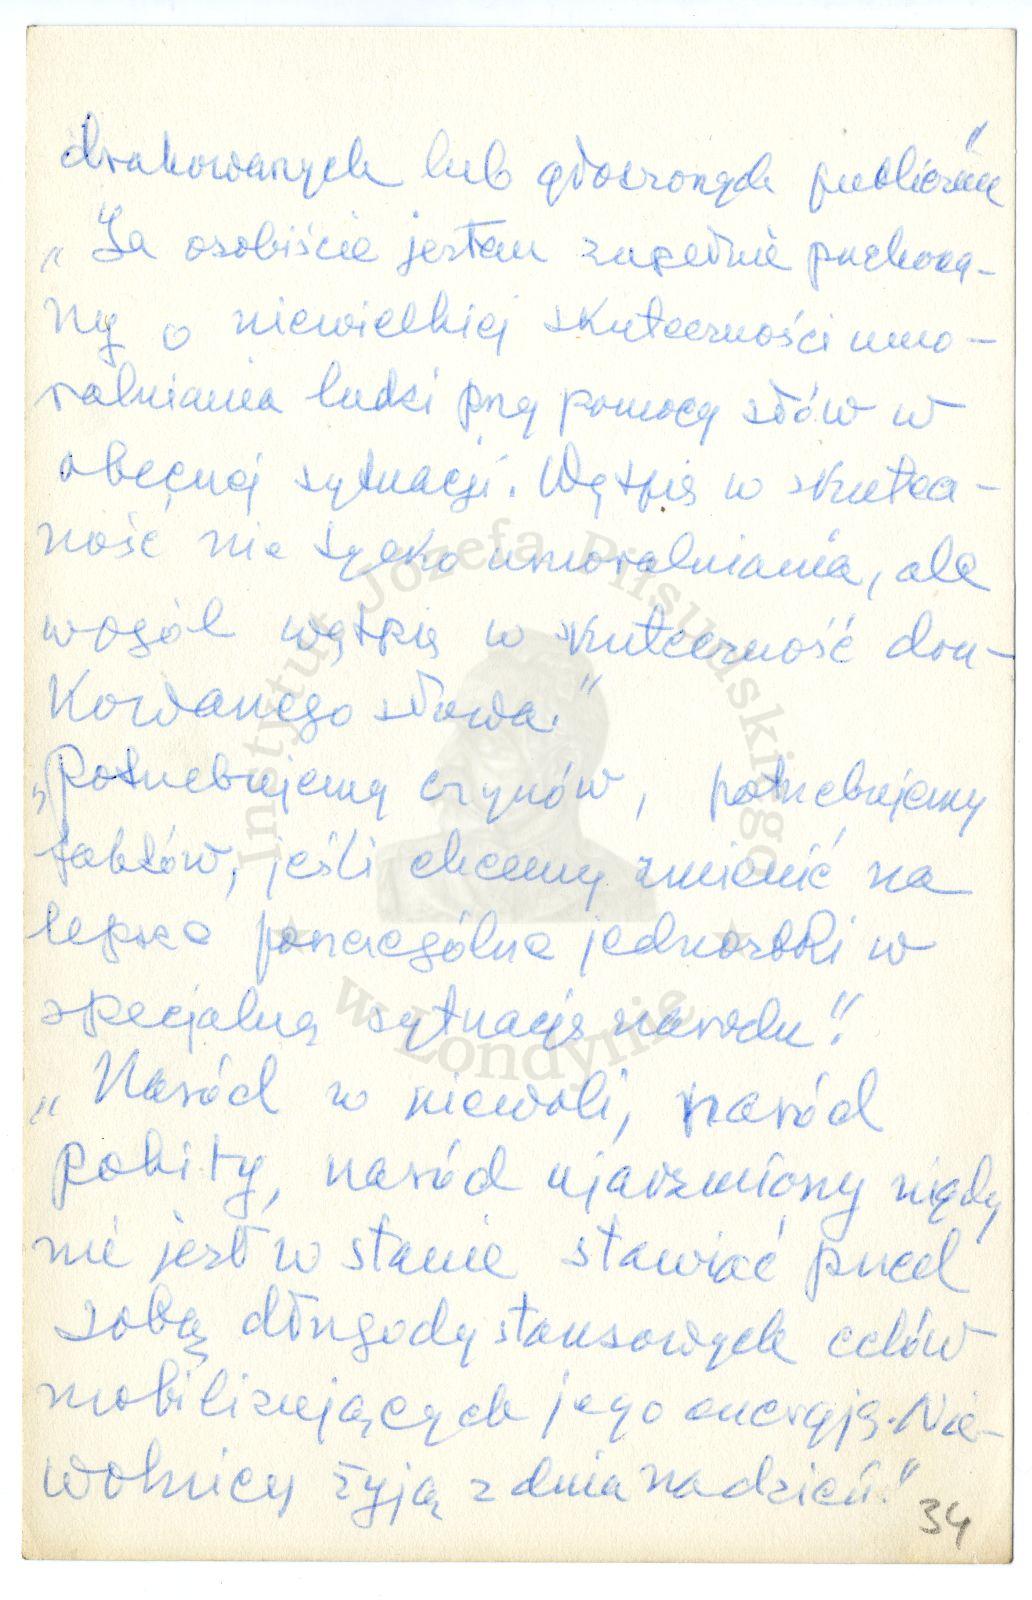 drukowanych lub głoszonych publicznie"
„Ja osobiście jestem zupełnie przekona-
ny o niewielkiej skuteczności umo-
ralniania ludzi przy pomocy słów w
obecnej sytuacji. Wątpię w skutecz-
ność nie tylko umoralniania, ale
wogóle wątpię w skuteczność dru-
kowanego słowa."
„Potrzebujemy czynów, potrzebujemy
faktów, jeśli chcemy zmienić na
lepsze poszczególne jednostki w
specjalną sytuację narodu".
„Naród w niewoli, naród
pobity, naród ujarzmiony nigdy
nie jest w stanie stawiać przed
sobą długodystansowych celów
mobilizujących jego energję. Nie-
wolnicy żyją z dnia na dzień."
34
Instytut Józefa Piłsudskiego
w Londynie